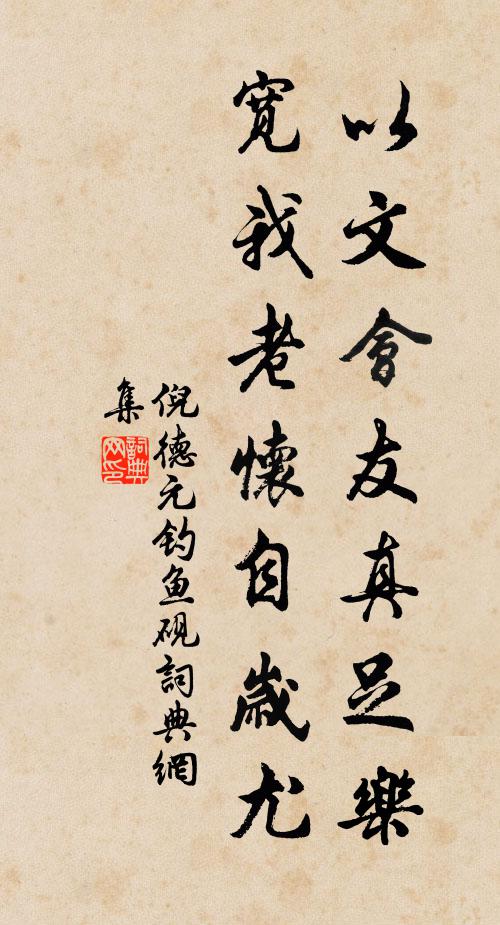 以文會友真足樂
寬我老懷自歲尤
倪德元钓鱼砚詞典網
集
詞典
网印